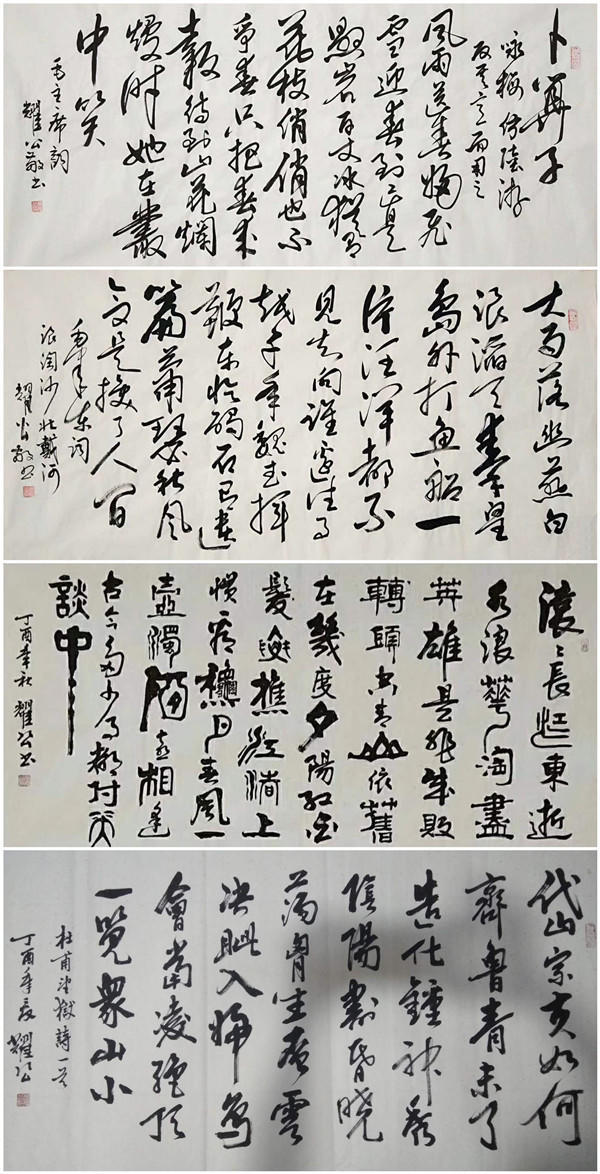 卜算子
咏梅 读陆游
反其意而用之
风雨送春归飞
雪迎春到已是
悬崖百丈冰犹有
花枝俏俏也不
争春只把春来
报待到山花烂
熳时她在叢
中笑
毛主席词
耀公敬书
大雨落幽燕白
浪滔天秦皇
岛外打鱼船一
片汪洋都不
见知向谁边往事
越千年魏武挥
鞭东临碣石有遗
篇萧瑟秋风
今又是换了人间
毛泽东词
浪淘沙北戴河
耀公敬书
滚滚長江東逝
水浪花淘盡
英雄是非成敗
轉頭空青山依舊
在幾度夕陽红白
髮漁樵江渚上
慣看秋月春風一
壺濁酒喜相逢
古今多少事都付笑
談中
丁酉年秋耀公书
岱宗夫如何
齊魯青未了
造化鍾神秀
陰陽割昏曉
荡胸生層雲
决眦入歸鸟
會當凌绝頂
一覽衆山小
杜甫望嶽詩一首
丁酉年夏耀公